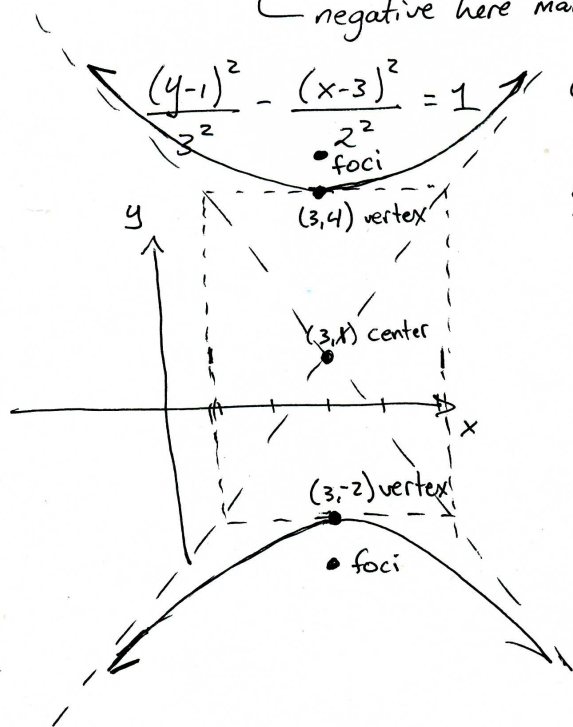 negative here ma
(y-1)² / 3² - (x-3)² / 2² = 1
foci
(3,4) vertex
y
(3,1) center
x
(3,-2) vertex
foci